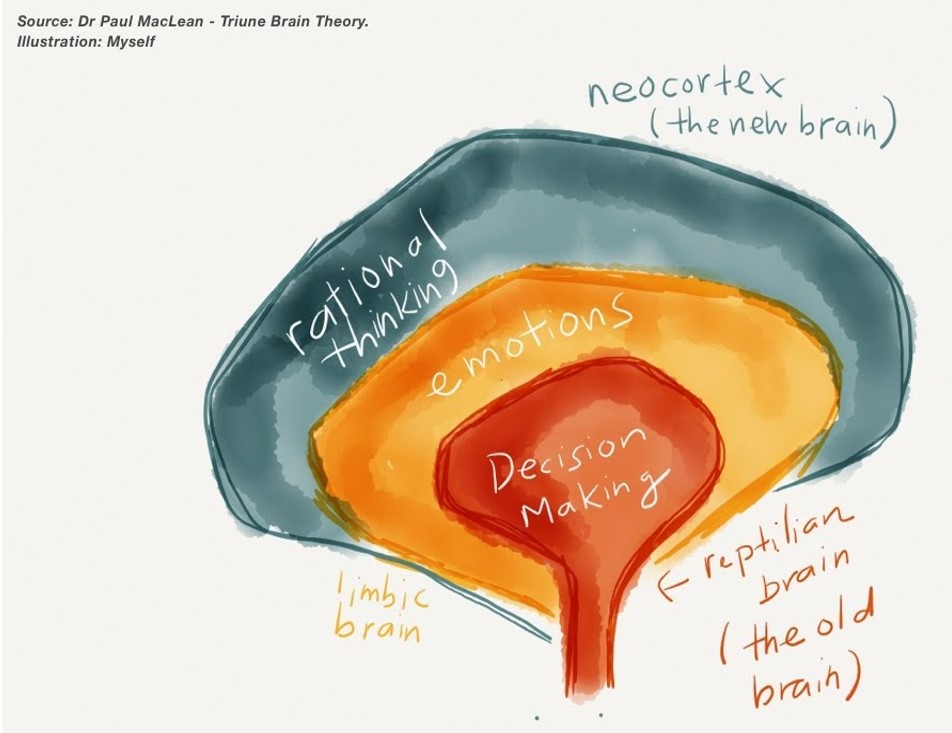 Source: Dr Paul MacLean - Triune Brain Theory.
Illustration: Myself
neocortex
(the new brain)
rational
thinking
emotions
Decision
Making
limbic
brain
← reptilian
brain
(the old
brain)